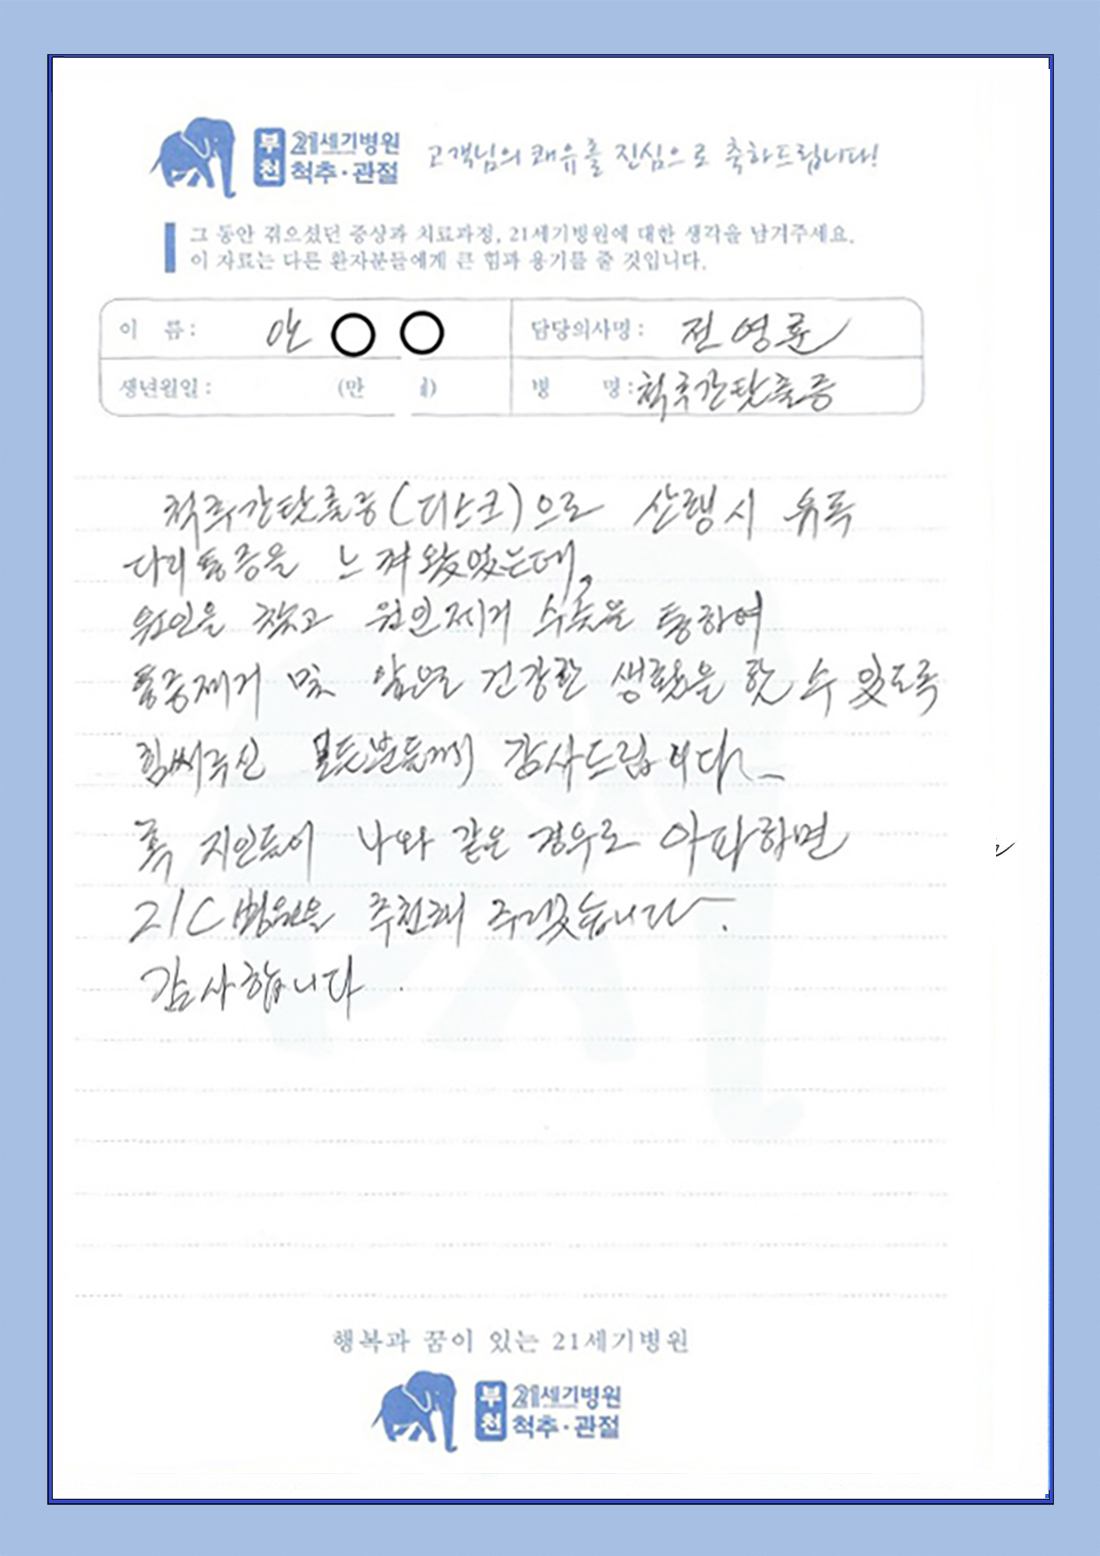 부천 21세기병원 척추·관절
고객님의 쾌유를 진심으로 축하드립니다!
그 동안 겪으셨던 증상과 치료과정, 21세기병원에 대한 생각을 남겨주세요.
이 자료는 다른 환자분들에게 큰 힘과 용기를 줄 것입니다.
이 름: 안 ○ ○ 담당의사명: 전영륜
생년월일: (만 세) 병 명: 척추간탓출증
척추간탓출증(디스크)으로 산행시 유독
다리 통증을 느껴 왔었는데,
원인을 찾고 원인제거 수술을 통하여
통증제거 및 앞으로 건강한 생활을 할 수 있도록
힘써주신 모든분들께 감사드립니다
혹 지인들이 나와 같은 경우로 아파하면
21C병원을 추천해 주겠습니다.
감사합니다.
행복과 꿈이 있는 21세기병원
부천 21세기병원 척추·관절